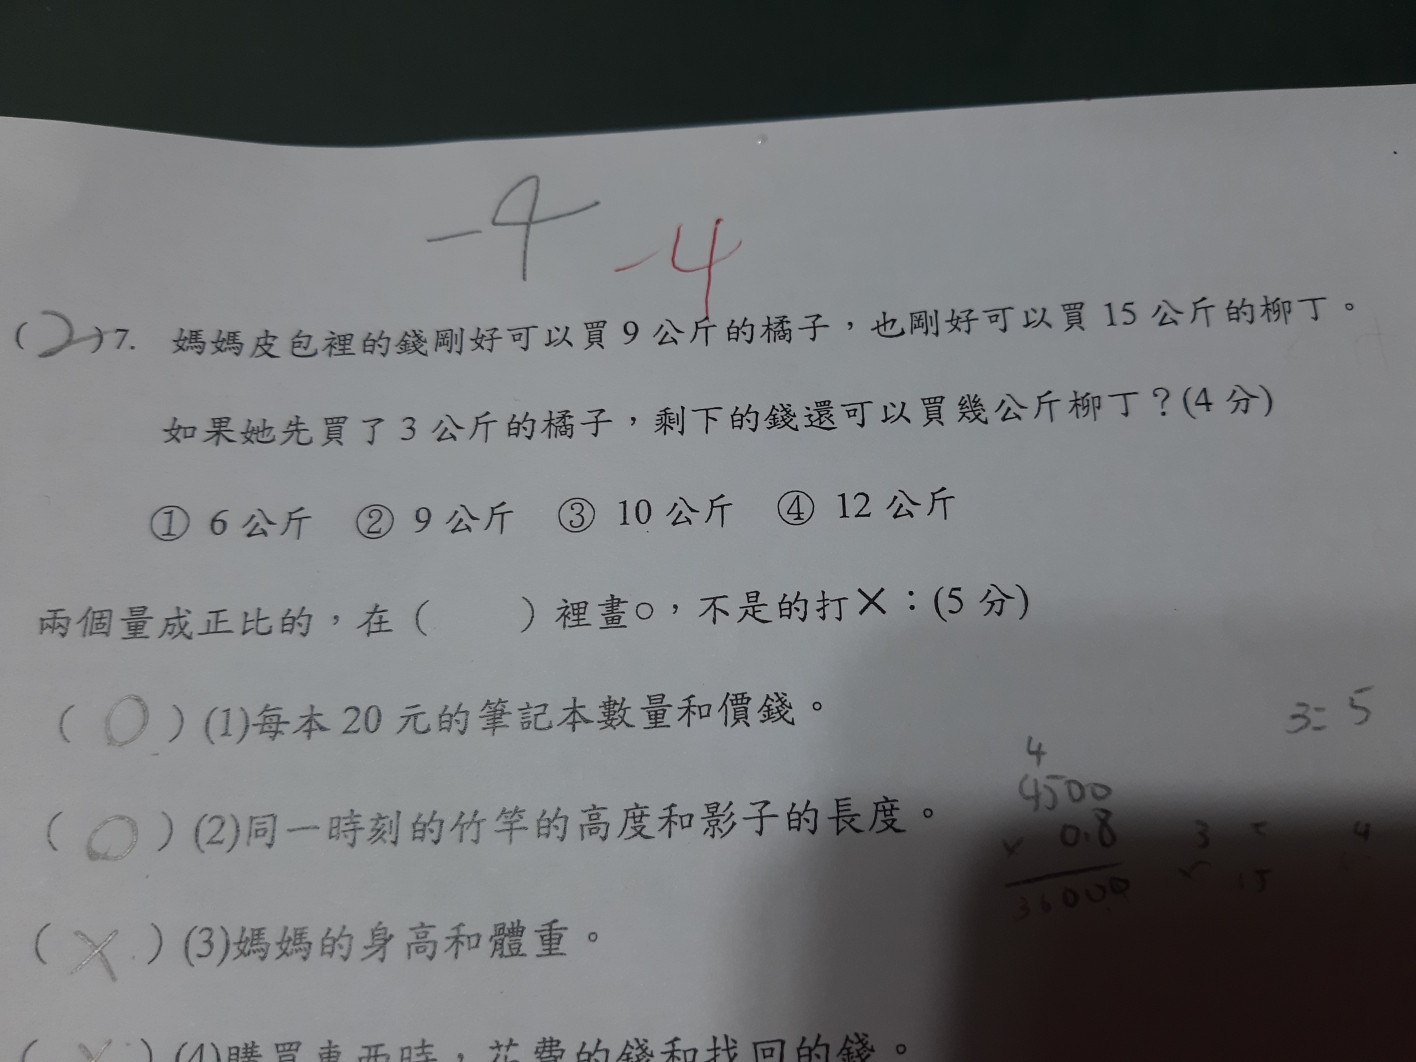 -4 -4
(2)7. 媽媽皮包裡的錢剛好可以買 9 公斤的橘子，也剛好可以買 15 公斤的柳丁。
如果她先買了 3 公斤的橘子，剩下的錢還可以買幾公斤柳丁？(4 分)
① 6 公斤 ② 9 公斤 ③ 10 公斤 ④ 12 公斤
兩個量成正比的，在（ ）裡畫○，不是的打×：(5 分)
（○）(1)每本 20 元的筆記本數量和價錢。
3=5
4
4500
（○）(2)同一時刻的竹竿的高度和影子的長度。
× 0.8
36000
3
4
15
（×）(3)媽媽的身高和體重。
（×）(4)購買東西時，花費的錢和找回的錢。